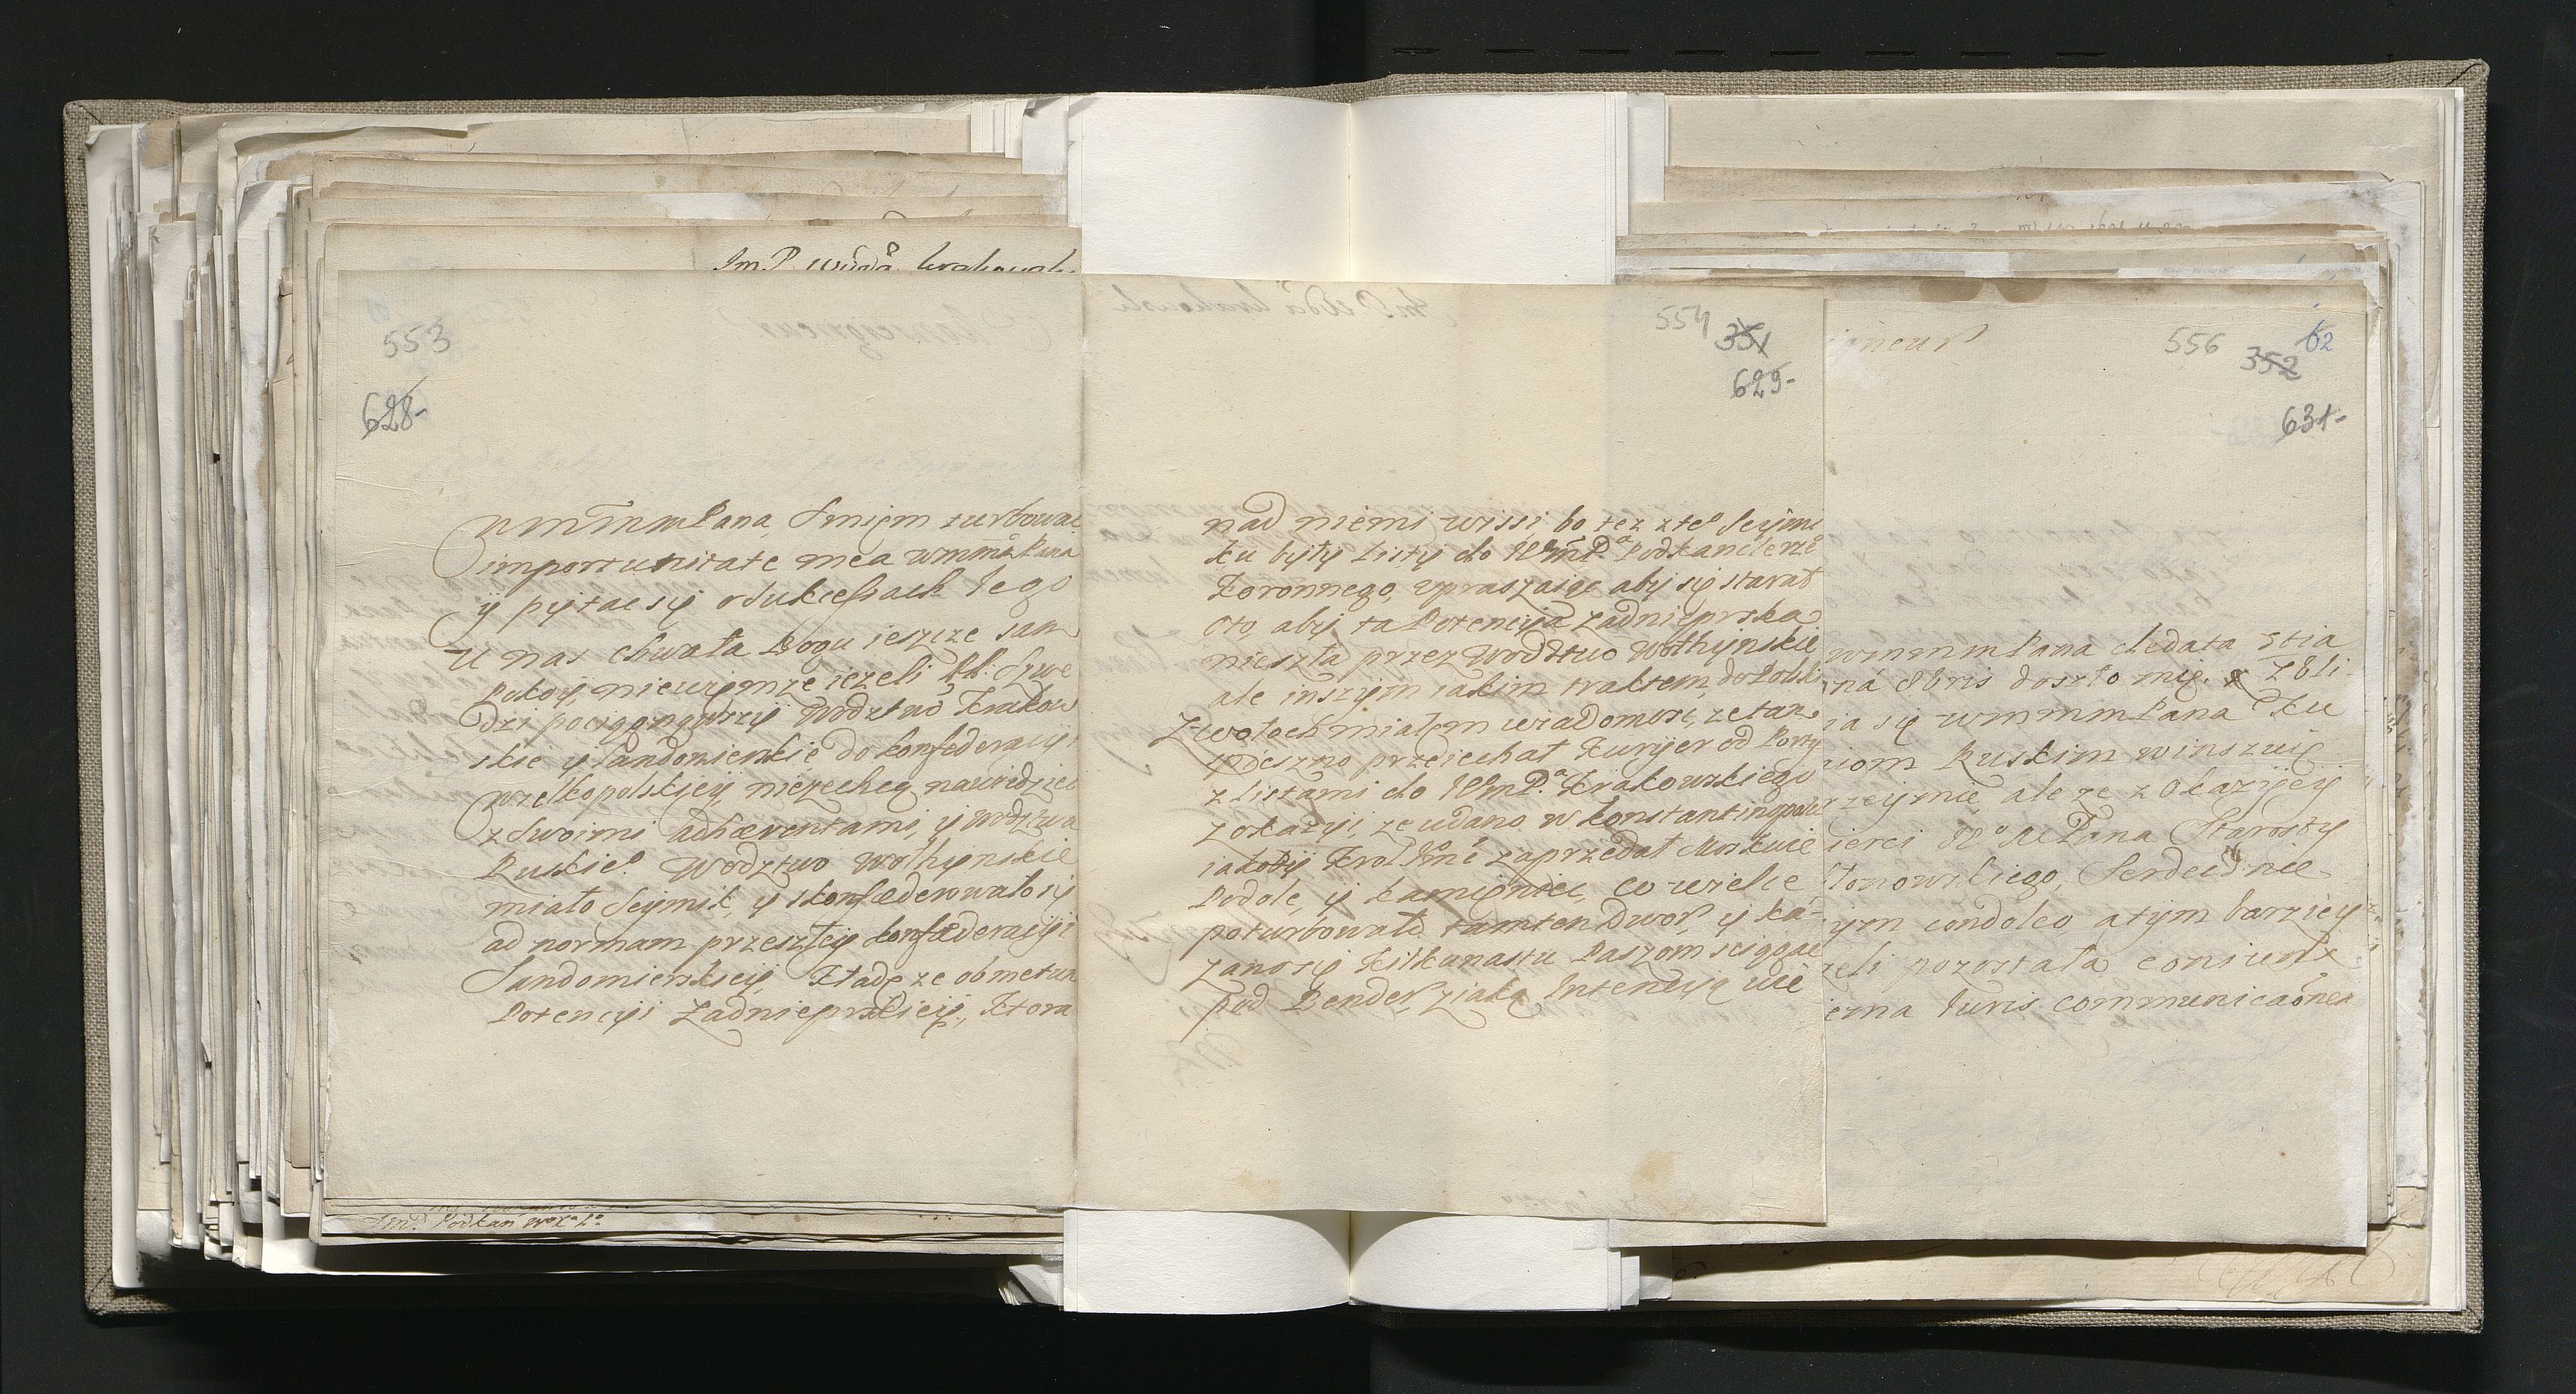 ImP wdda krakowsk
553
628-
WMMMPana, smiem turbowac
importunitate mea WMMPana
y pytac się o sukcessach tego
U nas chwała Bogu ieszcze sam
Pokoy, niewiem ze iezeli kk: Szwe
dzi pociągnąwszy Wodztwo Krakow
skie y Sandomierskie do konfederacyi
wielkopolskiey, niezechcą nawidziec
z Swoimi adhaerentami, y Wodztwa
Ruskieo. Wodztwo Wołhynskie
miało Seymik, y skonfaederowało się
ad normam przeszłey konfaederacyi
Sandomierskiey, Kładę ze ob metum
Potencyi Zadnieprskiey, ktora
Imci Podkan
554
351
629-
nad niemi wisi, bo tez z teo Seymi
ku były listy do Podkanclerzeo
Koronnego, upraszaiąc aby się starał
oto, aby ta Potencyia Zadnieprska
nieszła przez Wodztwo Wołhynskie
ale inszym iakim traktem do Polski
Z Wołoch miałem wiadomosc, ze tam
spieszno przeiechał Kuryier od Porty
z listami do Krakowskiego
z okazyi, ze udano w konstantinopolu
iakoby Krol zaprzedał Moskwie
Podole, y Kamieniec, co wielce
poturbowało tamten Dwor, y ka-
zano się kilkunastu Baszom sciągac
pod Bender, z iaką Intencyą nie
556
352
62
631-
ineur
WMMMPana de data 5tia
na 8bris doszło mię. Z Zbli
ia się WMMMPana Ku
iom Ruskim winszuię
rzeymie ale ze z Okazyey
ierci Pana Starosty
tonowskiego, Serdecznie
ym condoleo a tym barziey
zeli pozostała coniunx
erna Iuris communicaones